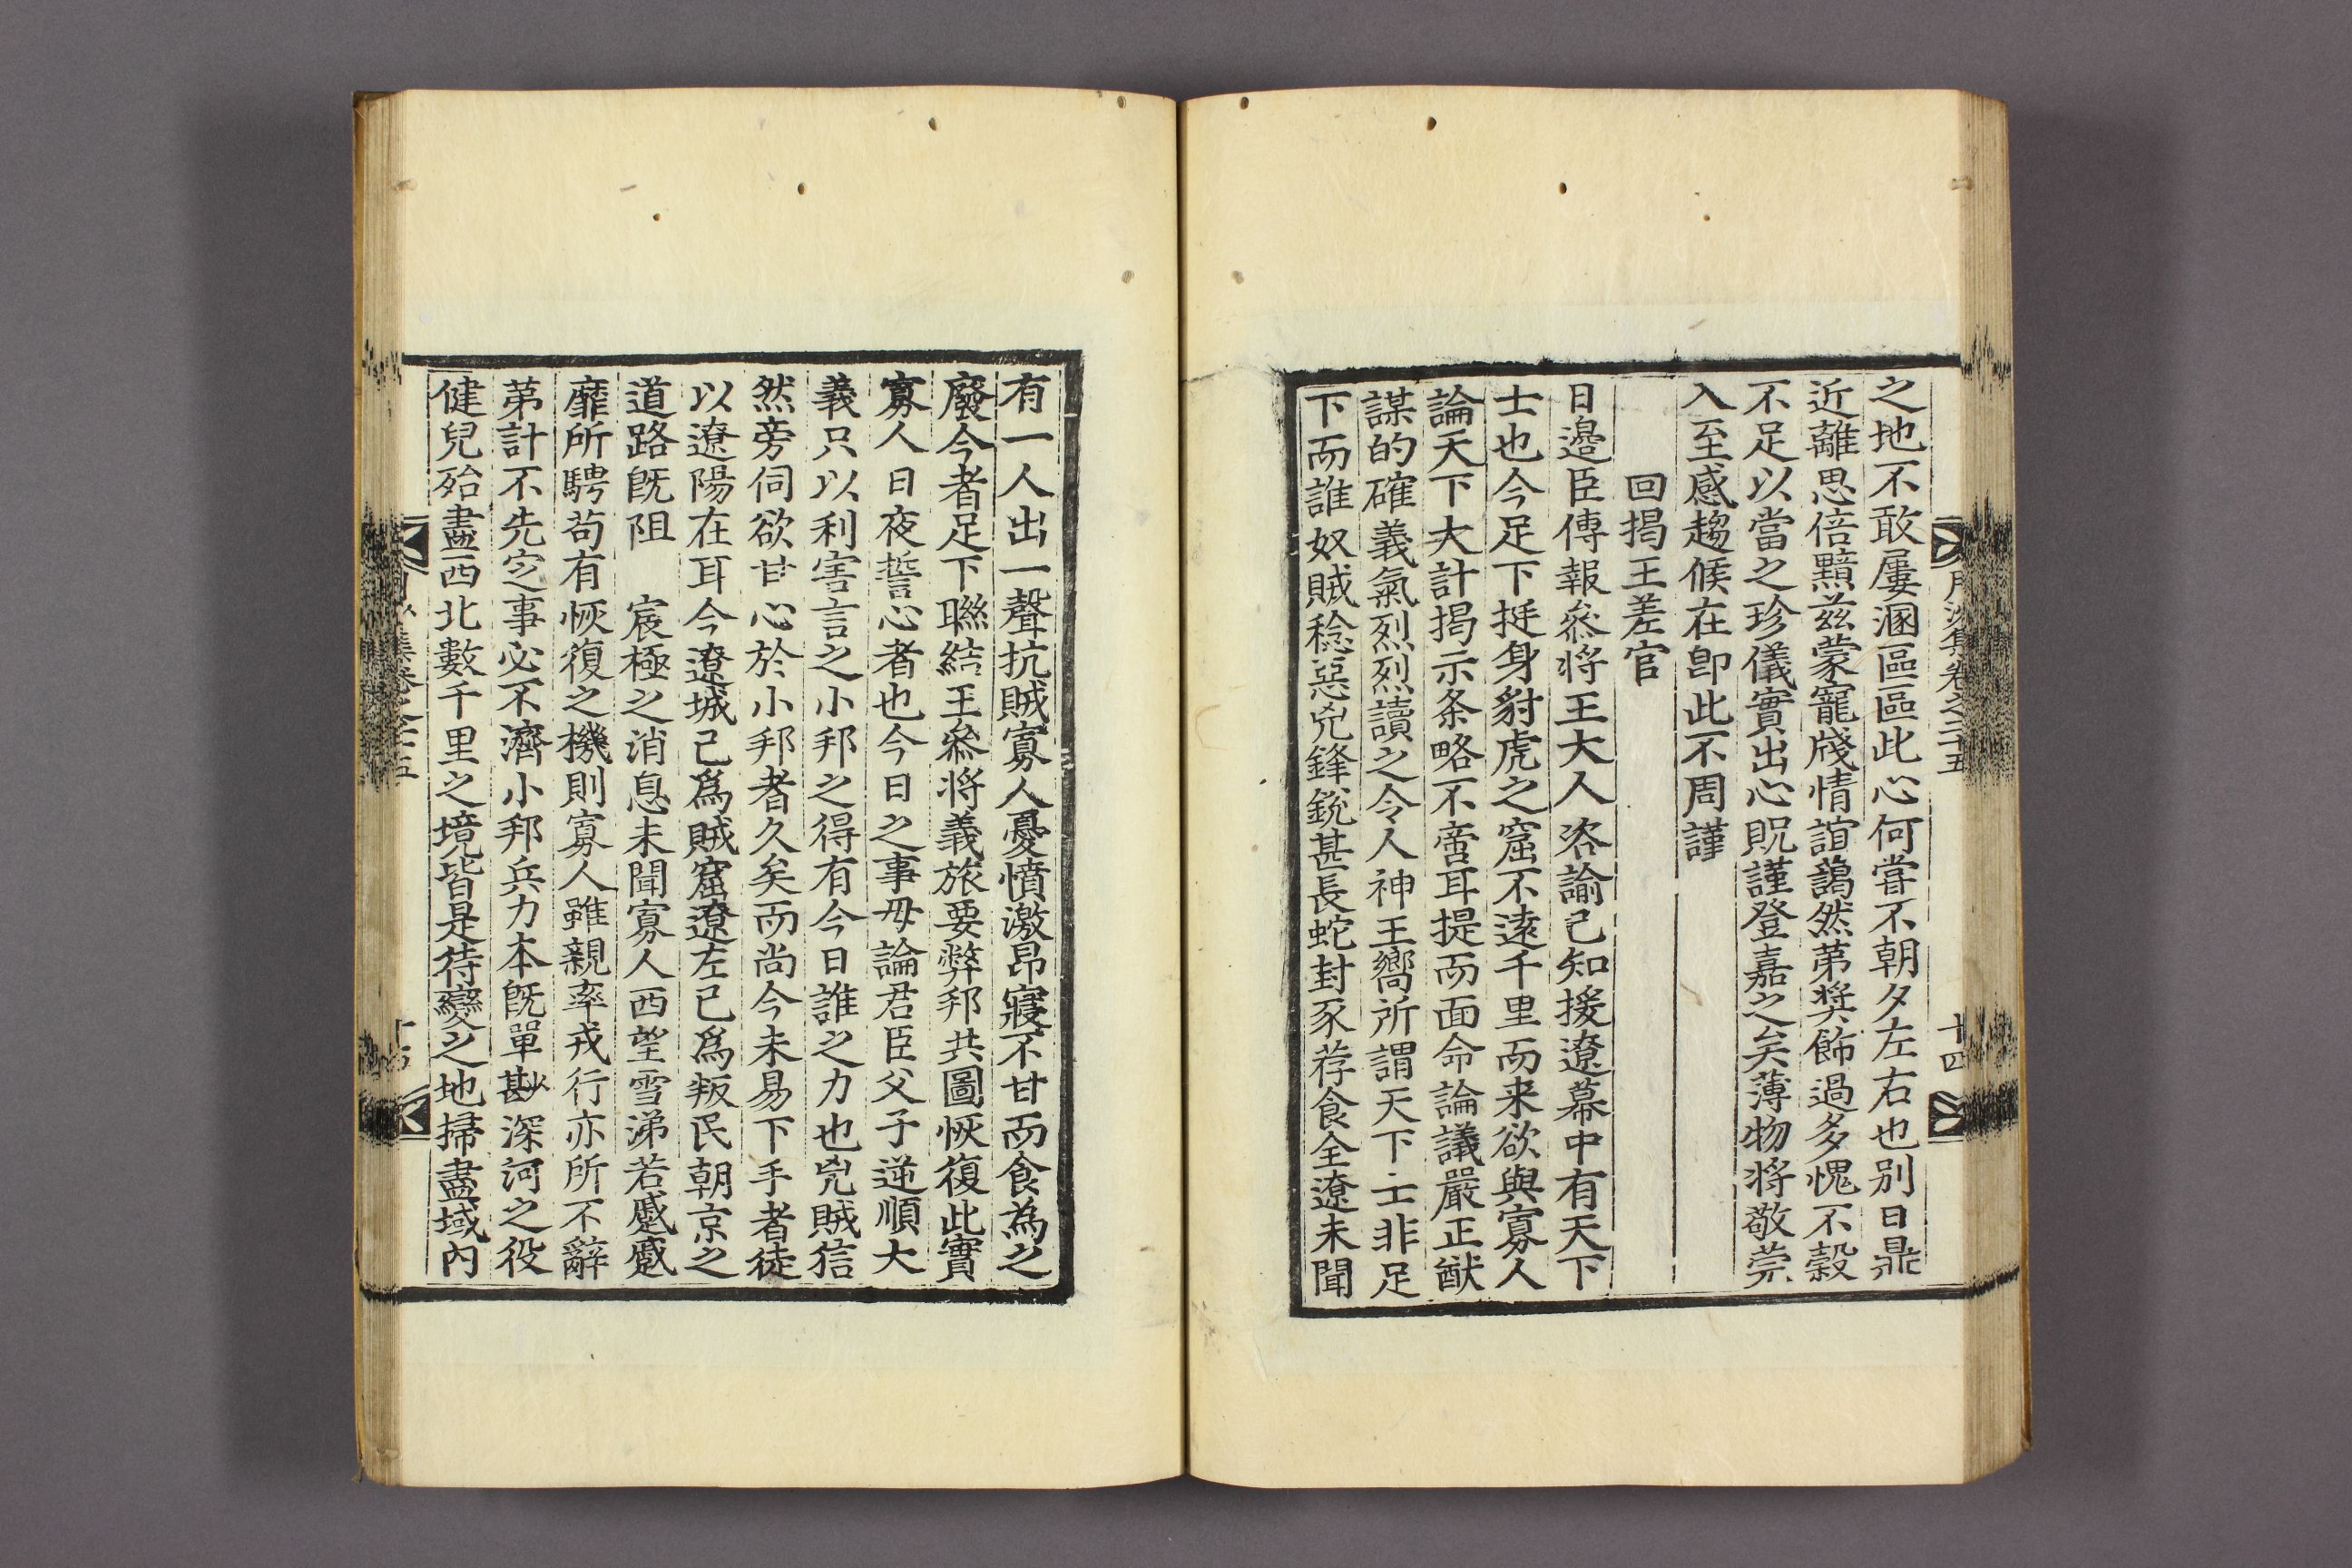 之地不敢屢溷區區此心何嘗不朝夕左右也別日鼎
近離思倍黯茲蒙寵牋情誼藹然苐奬飾過多愧不穀
不足以當之珍儀實出心貺謹登嘉之矣薄物將敬莞
入至感趨候在卽此不周謹
回揭王差官
日邊臣傳報叅將王大人咨諭已知援遼幕中有天下
士也今足下挺身豺虎之窟不遠千里而来欲與寡人
論天下大計揭示条略不啻耳提而面命論議嚴正猷
謀的確義氣烈烈讀之令人神王嚮所謂天下士非足
下而誰奴賊稔惡兇鋒銳甚長蛇封豕荐食全遼未聞
月沙集卷之二十五
十四
有一人出一聲抗賊寡人憂憤激昂寢不甘而食為之
廢今者足下聯結王叅將義旅要弊邦共圖恢復此實
寡人日夜誓心者也今日之事毋論君臣父子逆順大
義只以利害言之小邦之得有今日誰之力也兇賊信
然旁伺欲甘心於小邦者久矣而尚今未易下手者徒
以遼陽在耳今遼城已爲賊窟遼左已爲叛民朝京之
道路旣阻　宸極之消息未聞寡人西望雪涕若蹙蹙
靡所騁苟有恢復之機則寡人雖親率戎行亦所不辭
苐計不先定事必不濟小邦兵力本旣單尠深河之役
健兒殆盡西北數千里之境皆是待變之地掃盡域內